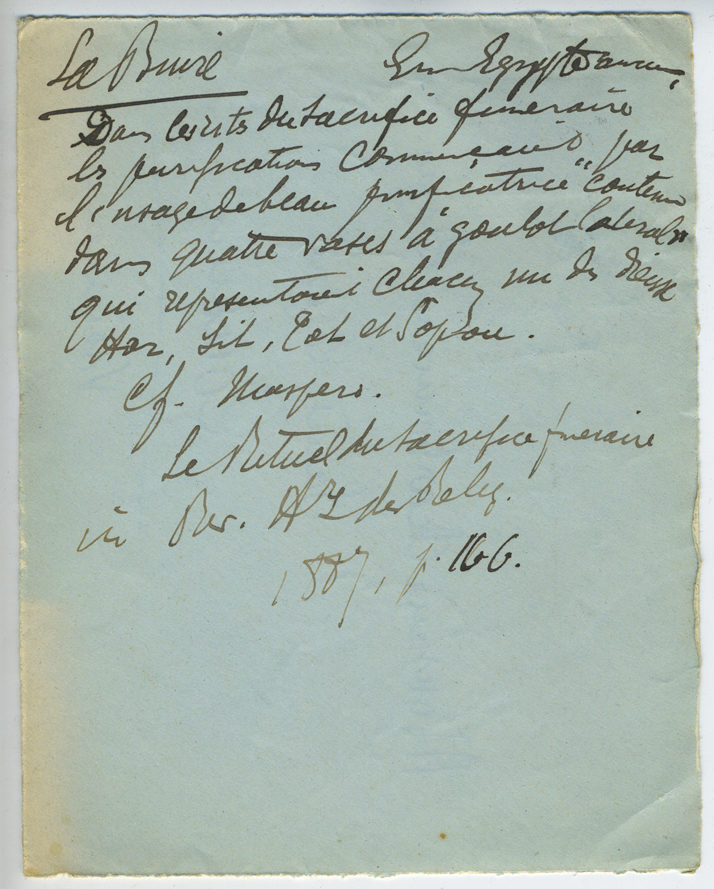 La Buire En Egypte anc.,
Dans les rits du sacrifice funeraire
les purifications commençait par
l'usage de l'eau purificatrice "contenu
dans quatre vases à goulot lateral"
qui representaient chacun un des dieux
Hor, Sit, Tot et Sopou.
Cf. Maspero.
Le Rituel du sacrifice funeraire
in Rev. H des Relig.
1887, p. 166.